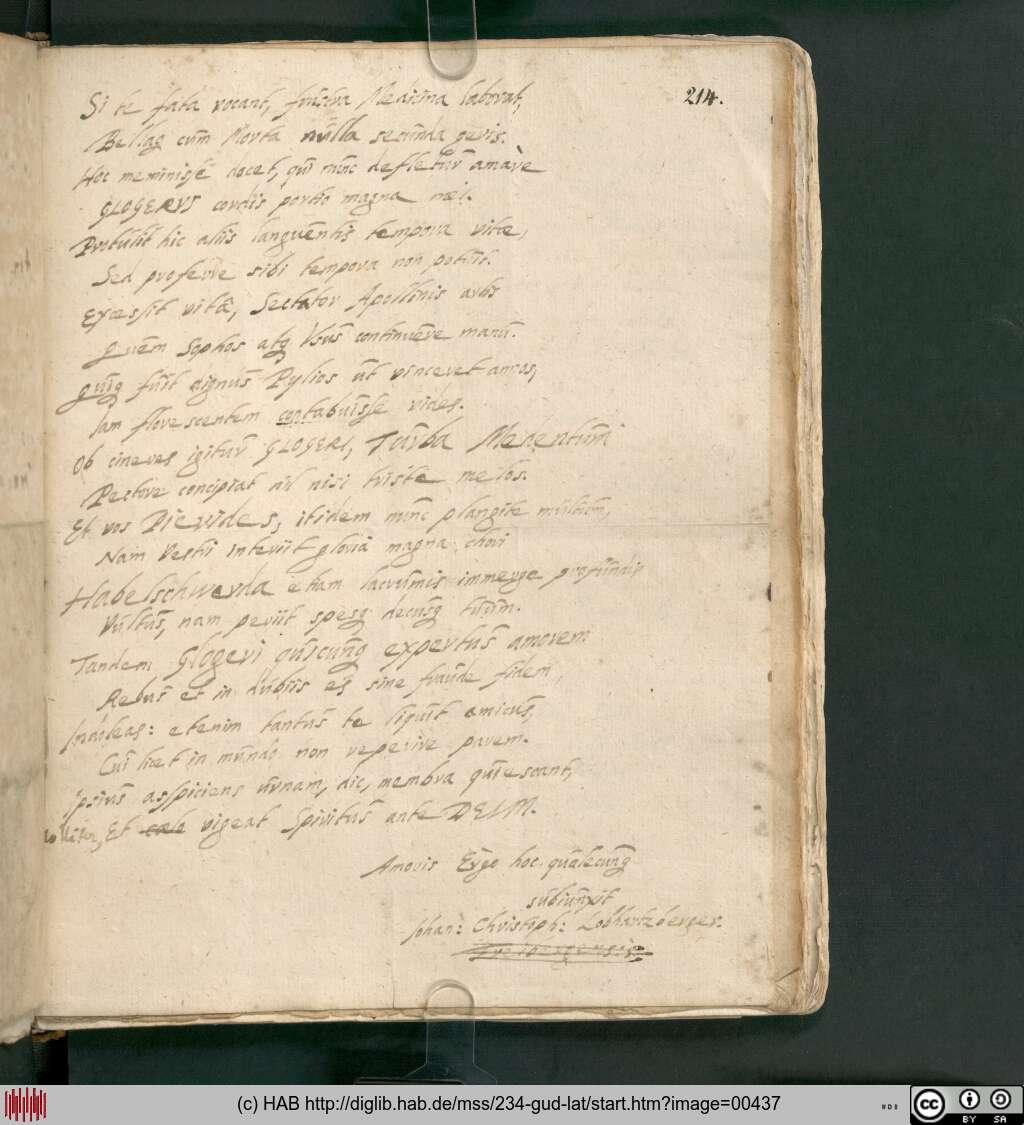 214.
Si te fata vocant, frustra Medicina laborat,
Bellaq cum Morta nulla secunda geris.
Hoc meminisse docet, qui nunc defletur amarè
GLOGERUS cordis portio magna mei.
Protulit hic aliis languentis tempora vitae,
Sed proferre sibi tempora non potuit.
Excessit vitâ, Sectator Apollinis artis
Quem Sophos atq Usus continuere manu.
Quiq fuit dignus Pylios ut vinceret annos,
Iam florescentem contabuisse vides.
Ob cineres igitur GLOGERI, Turba Medentum
Pectore concipiat nil nisi triste melos.
Et vos Pierides, itidem nunc plangite multum,
Nam Vestri interiit gloria magna chori
Habelschwerda etiam lacrumis immerge profundis
Vultus, nam periit spesq decusq tuum.
Tandem Glogeri quicunq expertus amorem
Rebus et in dubiis es sine fraude fidem,
Indoleas: etenim tantus te liquit amicus,
Cui licet in mundo non reperire parem.
Ipsius aspiciens urnam, dic, membra quiescant,
molliter, Et caelo vigeat Spiritus ante DEUM.
Amoris Ergo hoc qualecunq
subiunxit
Johan: Christoph: Lobhartzberger.
(c) HAB http://diglib.hab.de/mss/234-gud-lat/start.htm?image=00437
cc BY SA